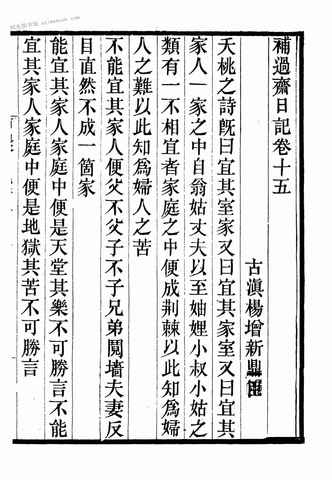 補過齋日記卷十五
古滇楊增新鼎臣
夭桃之詩既曰宜其室家又曰宜其家室又曰宜其
家人一家之中自翁姑丈夫以至妯娌小叔小姑之
類有一不相宜者家庭之中便成荆棘以此知為婦
人之難以此知為婦人之苦
不能宜其家人便父不父子不子兄弟鬩墻夫妻反
目直然不成一箇家
能宜其家人家庭中便是天堂其樂不可勝言不能
宜其家人家庭中便是地獄其苦不可勝言